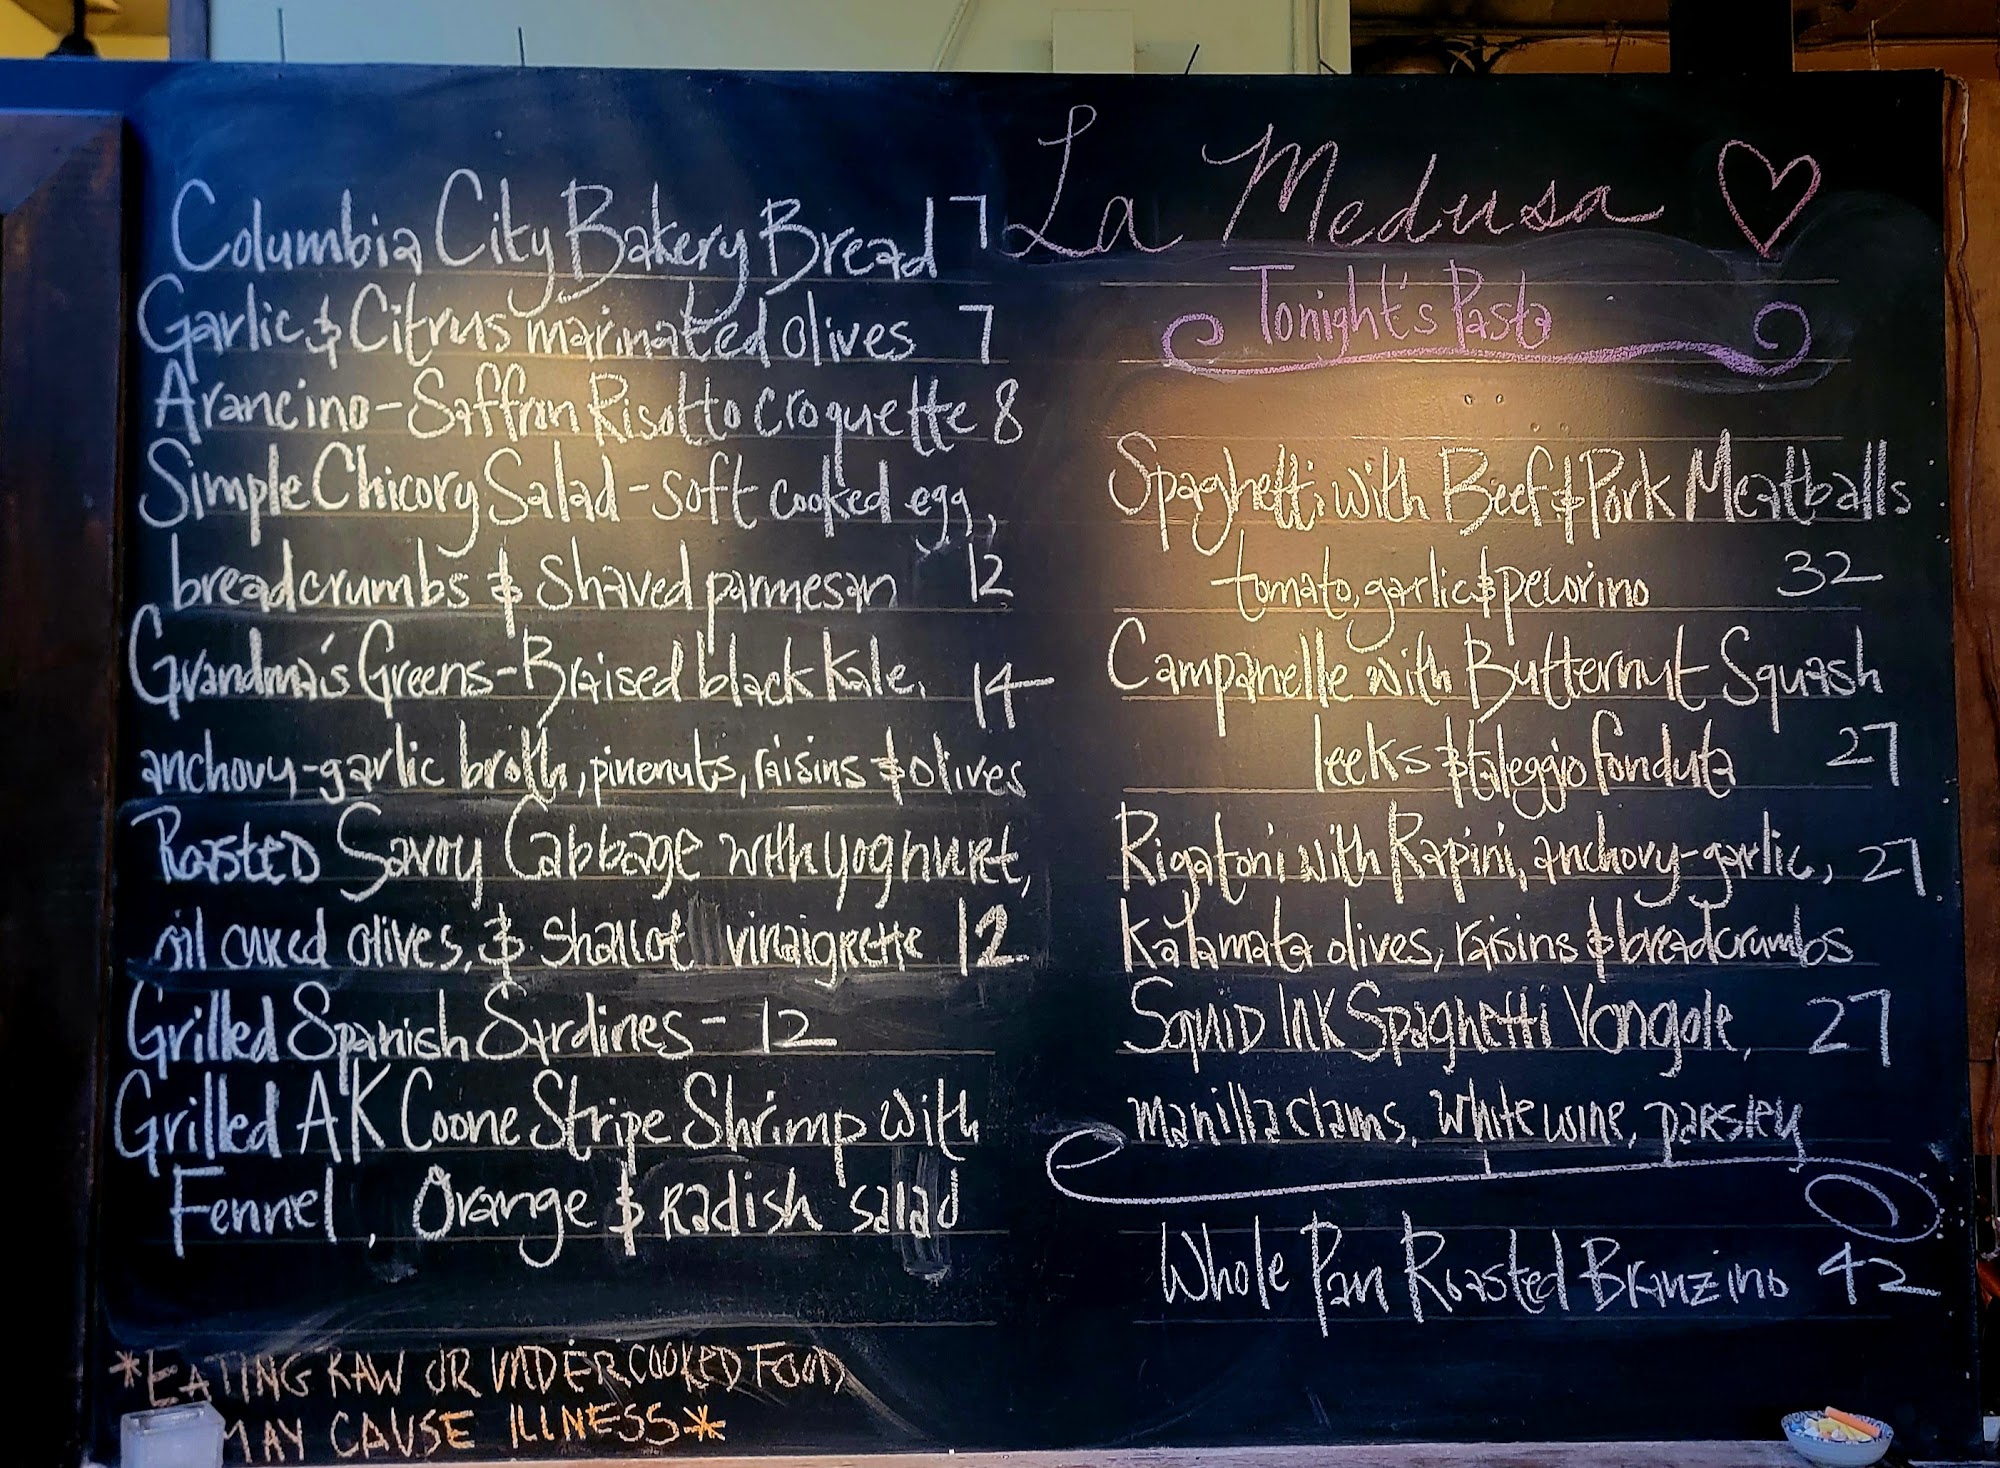 Columbia City Bakery Bread 7
Garlic & Citrus marinated olives 7
Arancino - Saffron Risotto croquette 8
Simple Chicory Salad - soft cooked egg,
breadcrumbs & shaved parmesan 12
Grandma's Greens - Braised black kale, 14
anchovy-garlic broth, pinenuts, raisins & olives
Roasted Savoy Cabbage with yoghuret,
oil cured olives, & shallot vinaigrette 12
Grilled Spanish Sardines - 12
Grilled AK Coone Stripe Shrimp with
Fennel, Orange & Radish salad
*EATING RAW OR UNDERCOOKED FOOD
MAY CAUSE ILLNESS*
La Medusa
Tonight's Pasta
Spaghetti with Beef & Pork Meatballs
tomato, garlic & pecorino 32
Campanelle with Butternut Squash
leeks & taleggio fonduta 27
Rigatoni with Rapini, anchovy-garlic, 27
Kalamata olives, raisins & breadcrumbs
Squid Ink Spaghetti Vongole, 27
manilla clams, white wine, parsley
Whole Pan Roasted Branzino 42